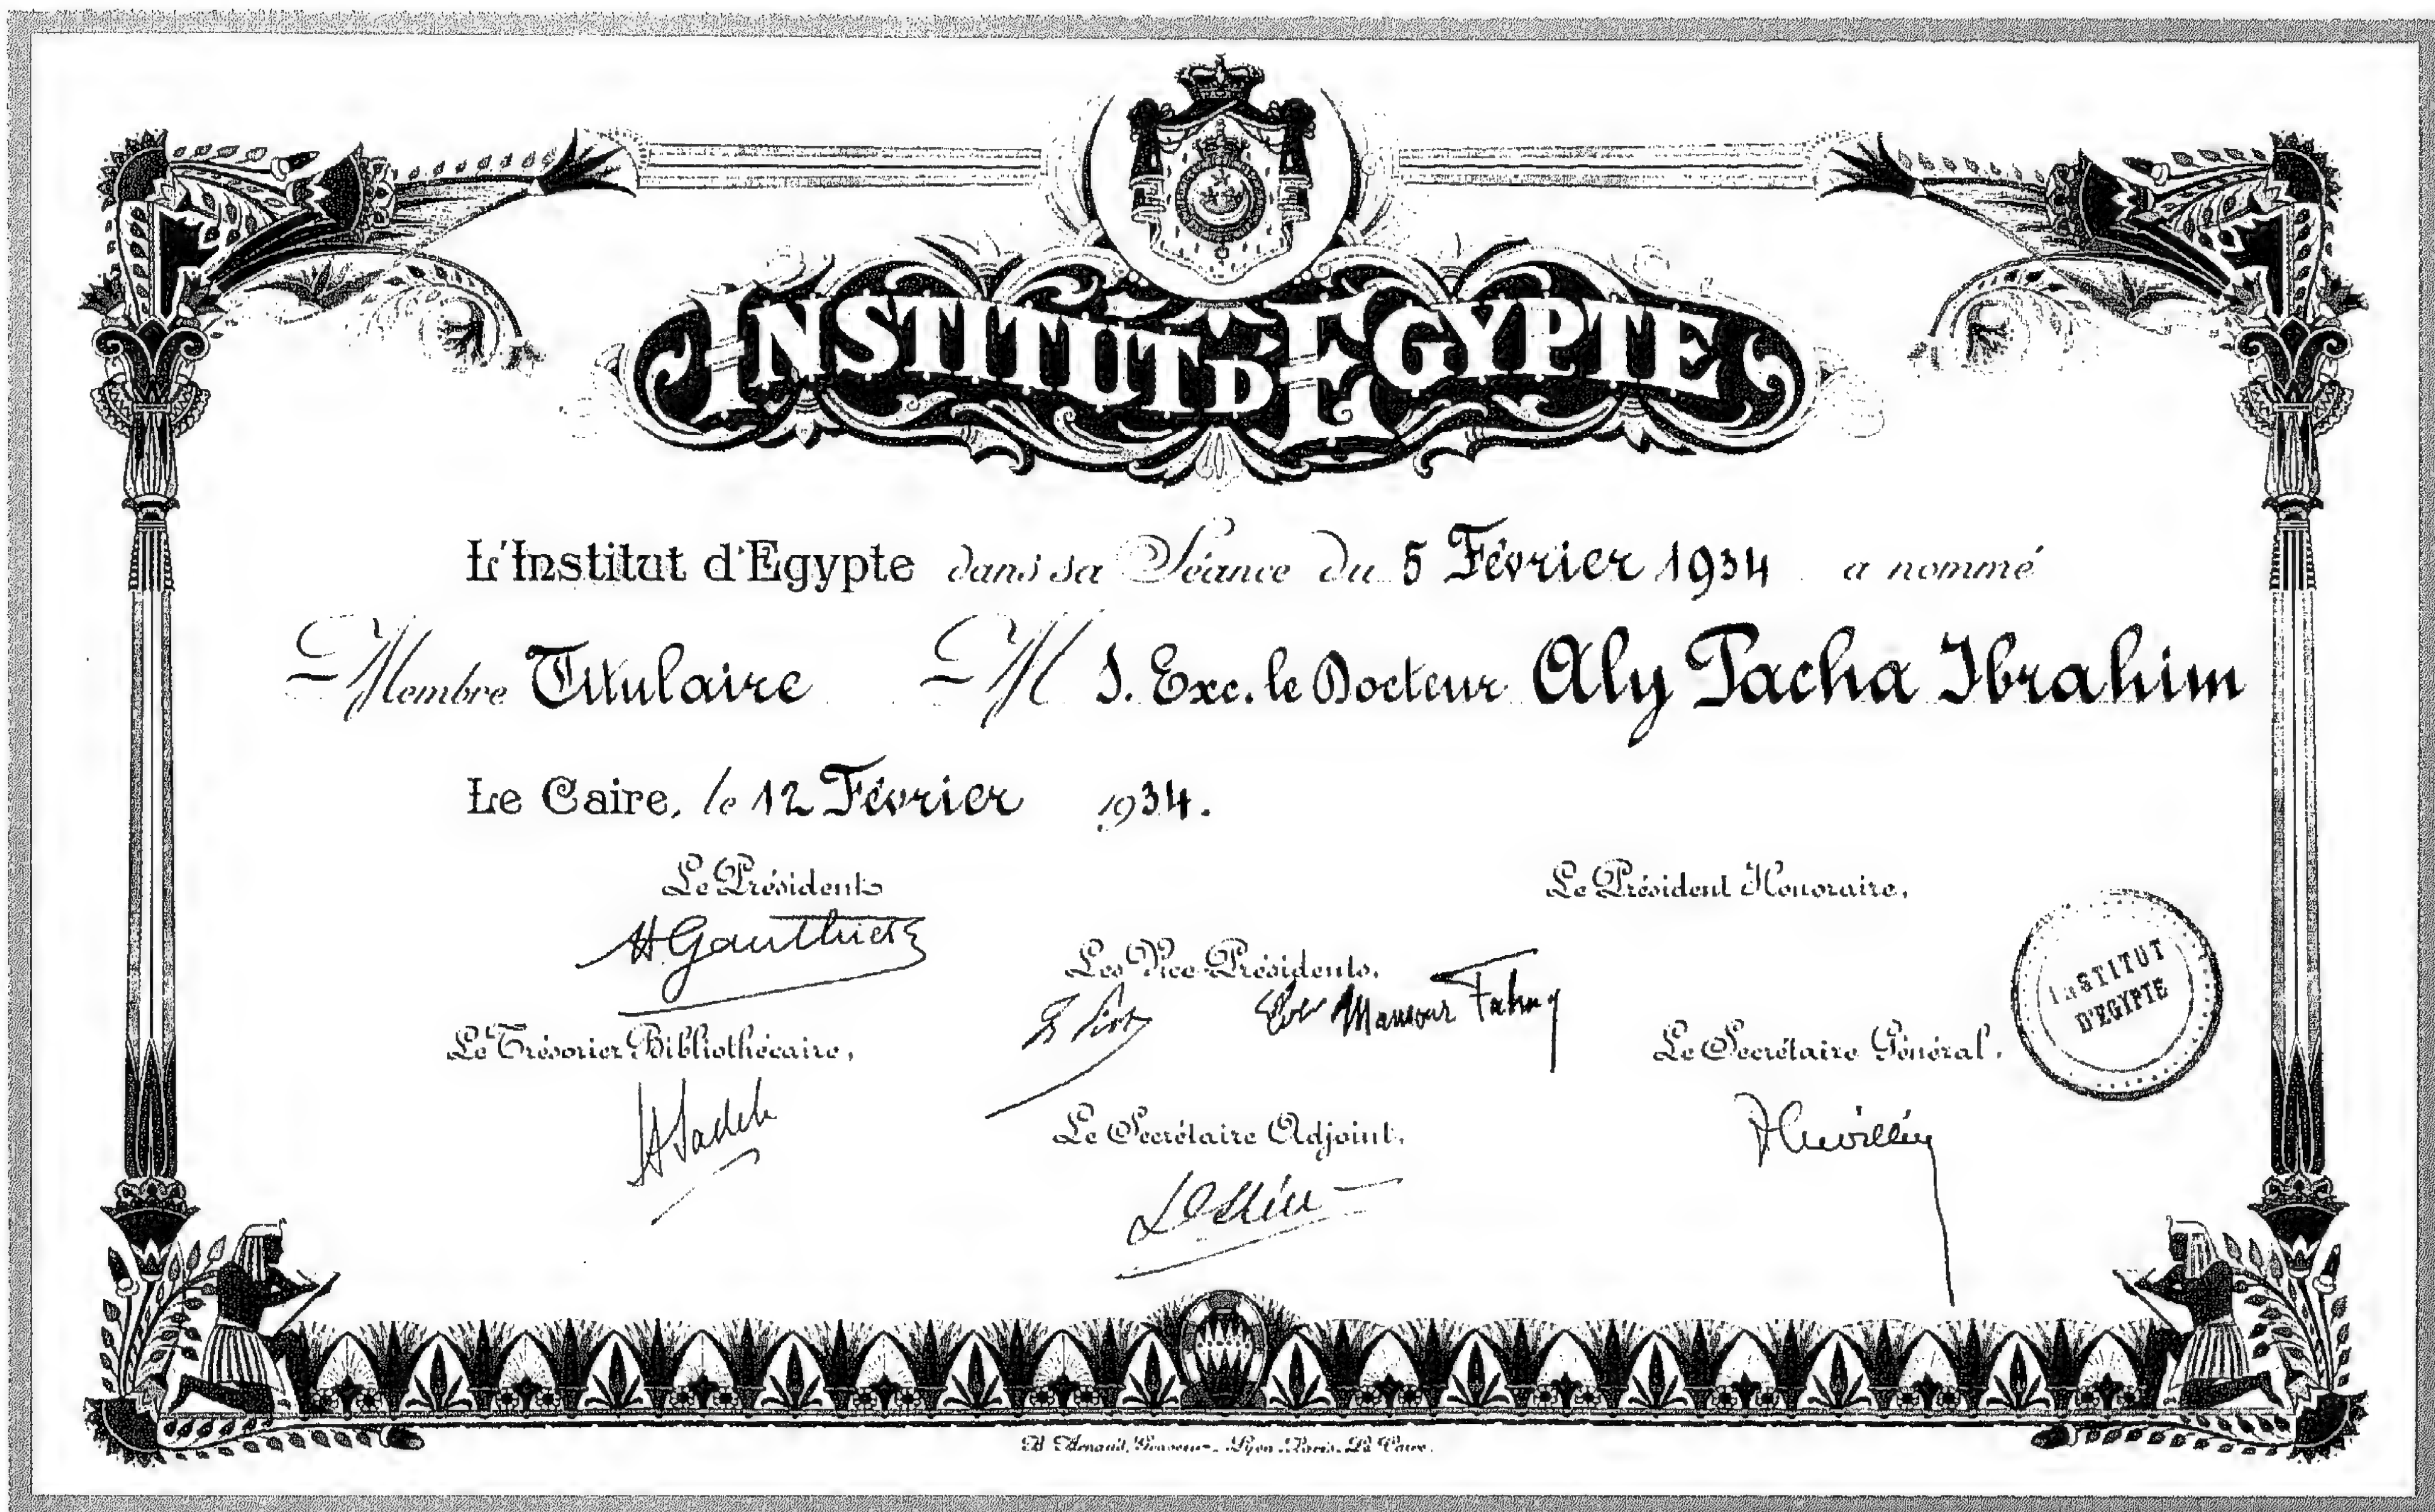 INSTITUT D'ÉGYPTE
L'Institut d'Egypte dans sa Séance du 5 Février 1934 a nommé
Membre Titulaire M S. Exc. le Docteur Aly Pacha Ibrahim
Le Caire, le 12 Février 1934.
Le Président
Le Président Honoraire,
H. Gauthier
Les Vice-Présidents,
Mansour Fahmy
INSTITUT
D'EGYPTE
Le Trésorier Bibliothécaire,
Le Secrétaire Général,
Le Secrétaire Adjoint,
Arnaud, Graveur - Lyon - Paris - Le Caire.